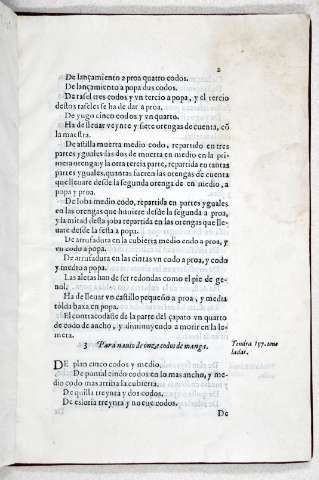 2
De lançamiento a proa quatro codos.
De lançamiento a popa dos codos.
De rasel tres codos y vn tercio a popa, y el tercio
destos raseles se ha de dar a proa.
De yugo cinco codos y vn quarto.
Ha de lleuar veynte y siete orengas de cuenta, cõ
la maestra.
De astilla muerta medio codo, repartido en tres
partes yguales: las dos de muerta en medio en la pri
mera orenga: y la otra tercia parte, repartida en tantas
partes yguales, quantas fueren las orengas de cuenta
que lleuare desde la segunda orenga de en medio, a
popa y proa.
De Ioba medio codo, repartida en partes yguales
en las orengas que huuiere desde la segunda a proa,
y la mitad desta joba repartida en las orengas que lle
uare desde la sesta a popa.
De arrufadura en la cubierta medio codo a proa, y
vn codo a popa.
De arrufadura en las cintas vn codo a proa, y codo
y medio a popa.
Las aletas han de ser redondas como el pie de ge-
nol.
Ha de lleuar vn castillo pequeño a proa, y media
tolda baxa en popa.
El contracodaste de la parte del çapato vn quarto
de codo de ancho, y diminuyendo a morir en la le-
mera.
3 Para nauio de onze codos de manga.
Tendra 197. tone
ladas.
DE plan cinco codos y medio.
De puntal cinco codos en lo mas ancho, y me-
dio codo mas arriba la cubierta.
De quilla treynta y dos codos.
De esloria treynta y nueue codos.
De